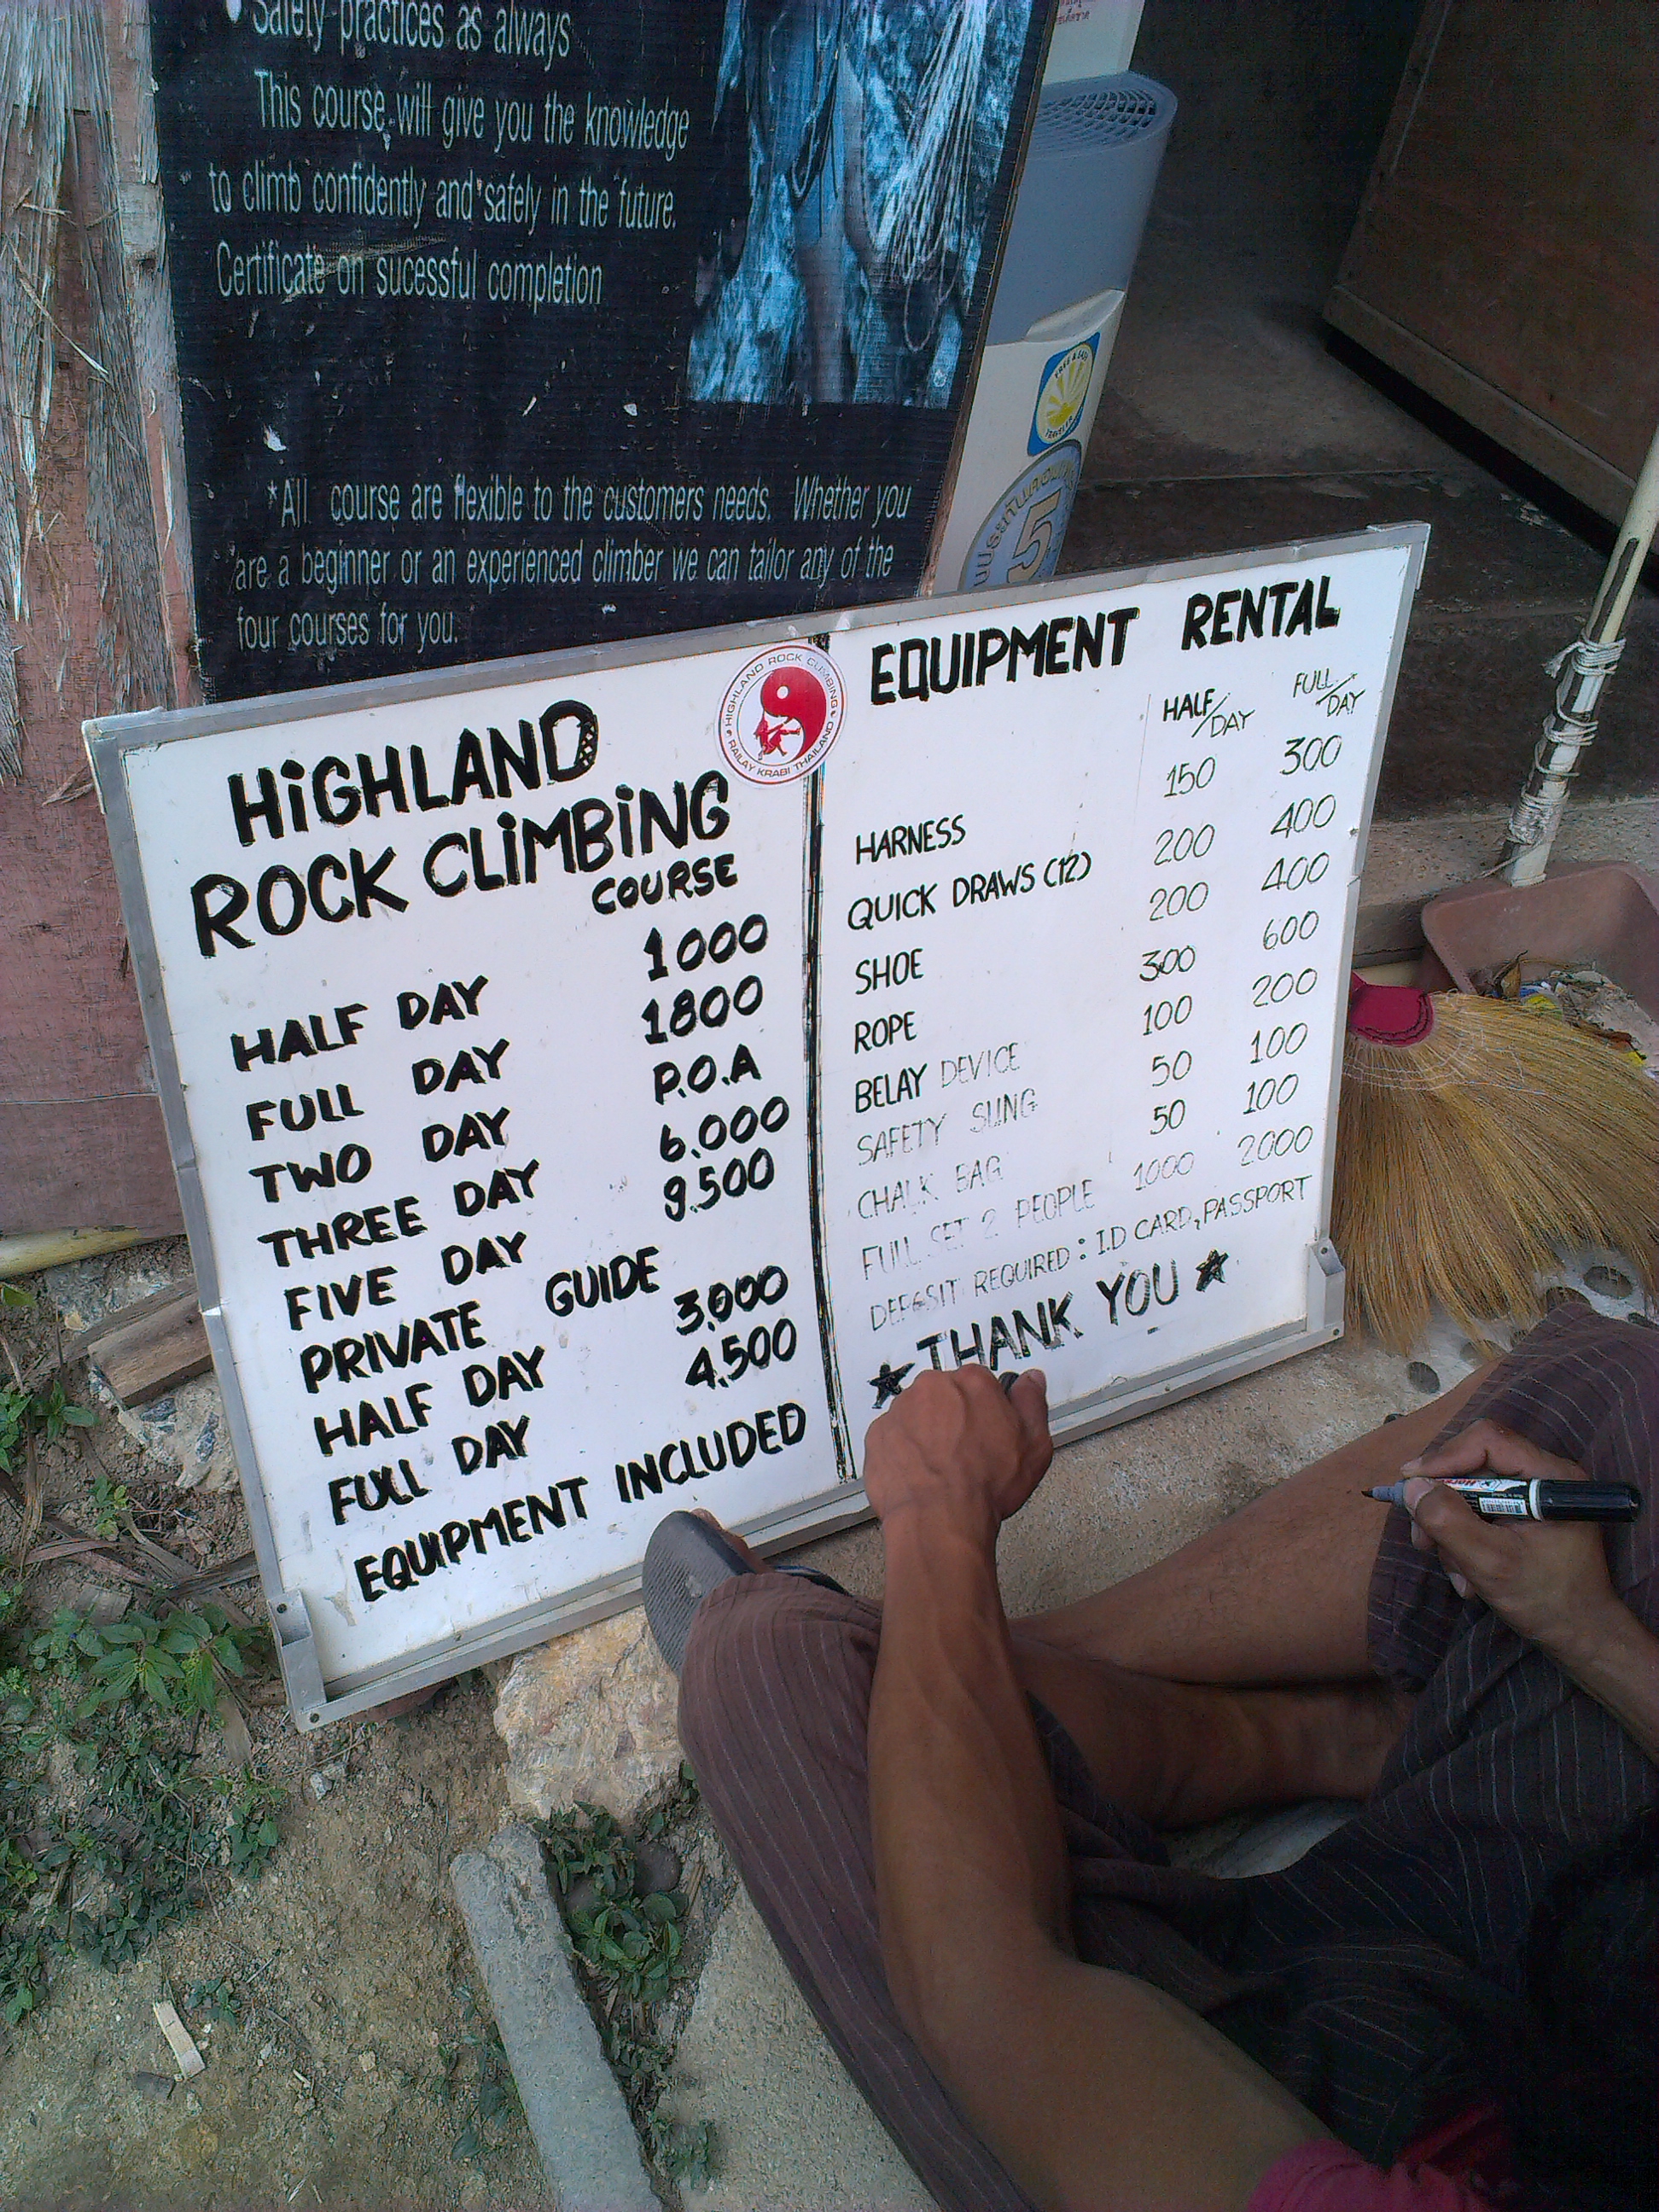 Safety practices as always
This course will give you the knowledge
to climb confidently and safely in the future.
Certificate on sucessful completion
*All course are flexible to the customers needs. Whether you
are a beginner or an experienced climber we can tailor any of the
four courses for you.
HiGHLAND
ROCK CLiMBiNG
COURSE
HALF DAY 1000
FULL DAY 1800
TWO DAY P.O.A
THREE DAY 6.000
FIVE DAY 9.500
PRIVATE GUIDE
HALF DAY 3,000
FULL DAY 4,500
EQUIPMENT INCLUDED
HIGHLAND ROCK CLIMBING
RAILAY KRABI THAILAND
EQUIPMENT RENTAL
HALF/DAY FULL/DAY
HARNESS 150 300
QUICK DRAWS (12) 200 400
SHOE 200 400
ROPE 300 600
BELAY DEVICE 100 200
SAFETY SLING 50 100
CHALK BAG 50 100
FULL SET 2 PEOPLE 1000 2000
DEPOSIT REQUIRED : I.D CARD, PASSPORT
THANK YOU
5